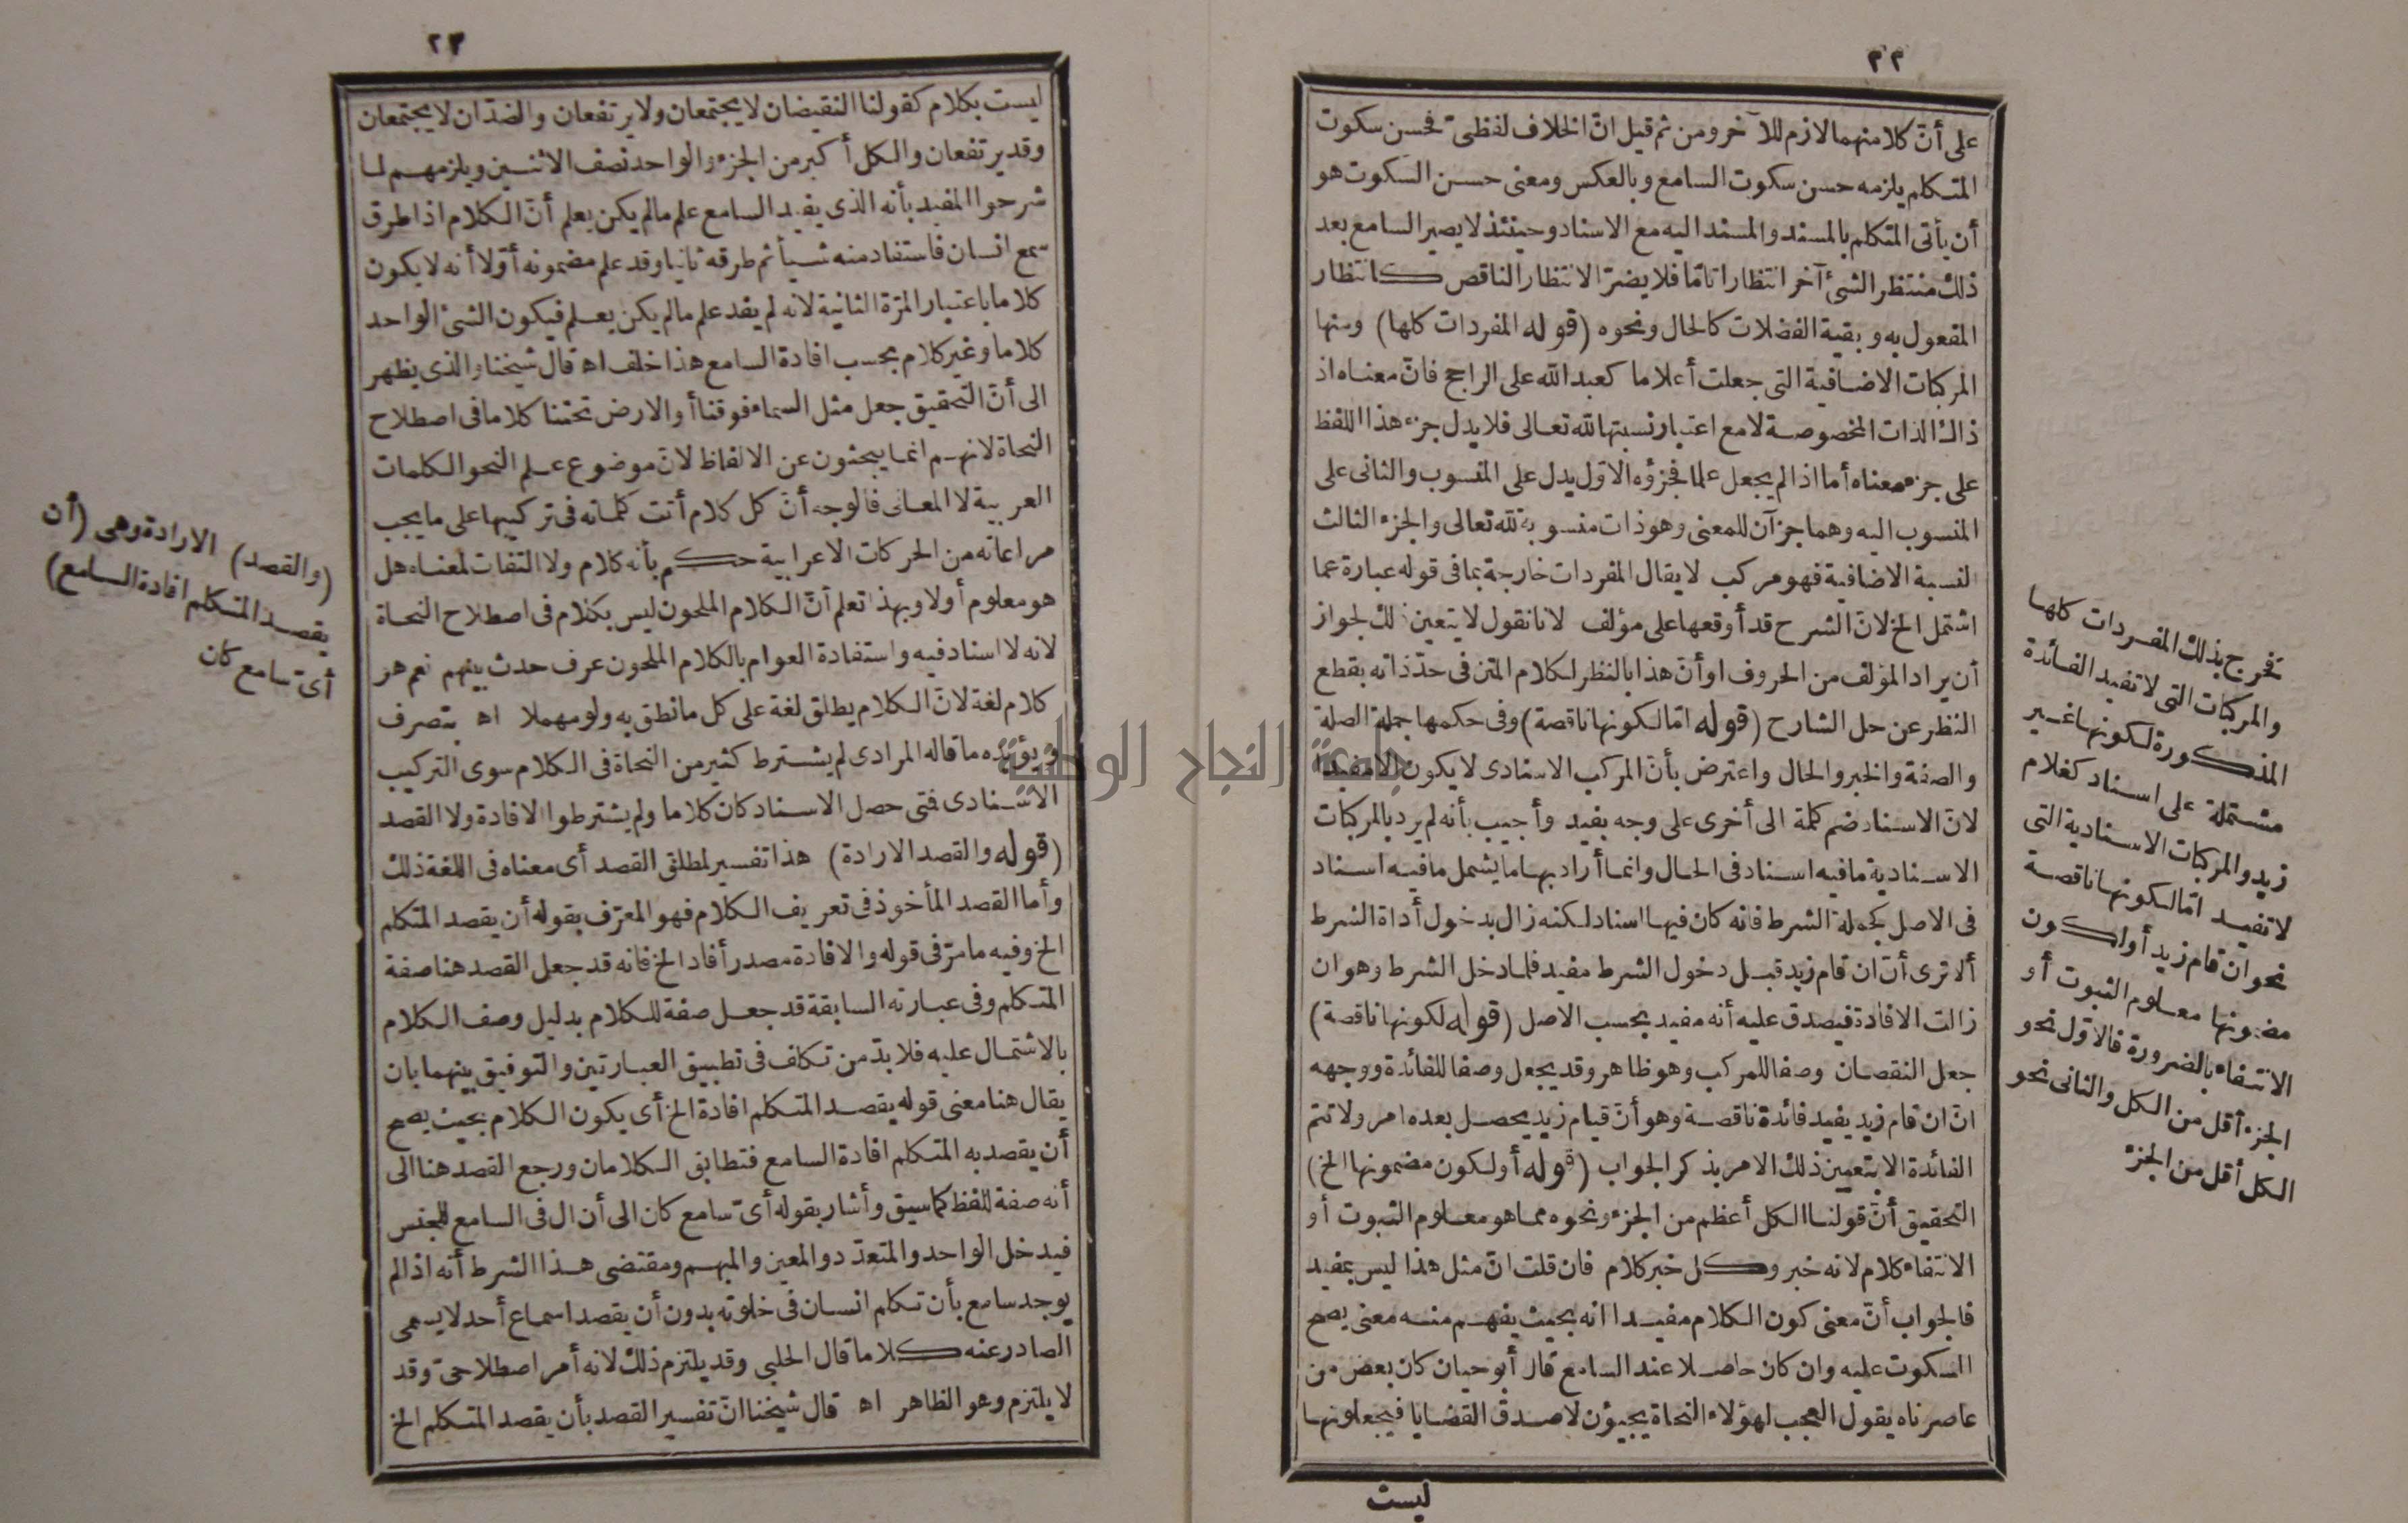 ٢٢
على أنّ كلا منهما لازم للآخر ومن ثم قيل انّ الخلاف لفظىّ فحسن سكوت
المتكلم يلزمه حسن سكوت السامع وبالعكس ومعنى حسن السكوت هو
أن يأتى المتكلم بالمسند والمسند اليه مع الاسناد وحينئذ لا يصير السامع بعد
ذلك منتظر الشئ آخر انتظارا تامّا فلا يضرّ الانتظار الناقص كانتظار
المفعول به وبقية الفضلات كالحال ونحوه (قوله المفردات كلها) ومنها
المركبات الاضافية التى جعلت أعلاما كعبد الله على الراجح فانّ معناه اذ
ذاك الذات المخصوصة لا مع اعتبار نسبتها لله تعالى فلا يدل جزء هذا اللفظ
على جزء معناه أما اذا لم يجعل علما فجزؤه الاوّل يدل على المنسوب والثانى على
المنسوب اليه وهما جزآن للمعنى وهو ذات منسوبة لله تعالى والجزء الثالث
النسبة الاضافية فهو مركب لا يقال المفردات خارجة بما فى قوله عبارة عما
اشتمل الخ لانّ الشرح قد أوقعها على مؤلف لانا نقول لا يتعين ذلك لجواز
أن يراد المؤلف من الحروف او أنّ هذا بالنظر لكلام المتن فى حدّ ذاته بقطع
النظر عن حل الشارح (قوله امّا لكونها ناقصة) وفى حكمها جملة الصلة
والصفة والخبر والحال واعترض بأنّ المركب الاسنادى لا يكون الا مفيدا
لانّ الاسناد ضم كلمة الى أخرى على وجه يفيد وأجيب بأنه لم يرد بالمركبات
الاسنادية ما فيه اسناد فى الحال وانما أراد بها ما يشمل ما فيه اسناد
فى الاصل كجملة الشرط فانه كان فيها اسناد لكنه زال بدخول أداة الشرط
ألا ترى أنّ ان قام زيد قبل دخول الشرط مفيد فلما دخل الشرط وهو ان
زالت الافادة فيصدق عليه أنه مفيد بحسب الاصل (قوله لكونها ناقصة)
جعل النقصان وصفا للمركب وهو ظاهر وقد يجعل وصفا للفائدة ووجهه
انّ ان قام زيد يفيد فائدة ناقصة وهو أنّ قيام زيد يحصل بعده امر ولا تتم
الفائدة الا بتعيين ذلك الامر بذكر الجواب (قوله أو لكون مضمونها الخ)
التحقيق أنّ قولنا الكل أعظم من الجزء ونحوه مما هو معلوم الثبوت أو
الانتفاء كلام لانه خبر وكل خبر كلام فان قلت انّ مثل هذا ليس بمفيد
فالجواب أنّ معنى كون الكلام مفيدا انه بحيث يفهم منه معنى يصح
السكوت عليه وان كان حاصلا عند السامع قال أبو حيان كان بعض من
عاصرناه يقول العجب لهؤلاء النحاة يجيؤن لاصدق القضايا فيجعلونها
ليست
فخرج بذلك المفردات كلها
والمركبات التى لا تفيد الفائدة
المذكورة لكونها غير
مشتملة على اسناد كغلام
زيد والمركبات الاسنادية التى
لا تفيد امّا لكونها ناقصة
نحو ان قام زيد أو لكون
مضمونها معلوم الثبوت أو
الانتفاء بالضرورة فالاوّل نحو
الجزء أقل من الكل والثانى نحو
الكل أقل من الجزء
٢٣
ليست بكلام كقولنا النقيضان لا يجتمعان ولا يرتفعان والضدّان لا يجتمعان
وقد يرتفعان والكل أكبر من الجزء والواحد نصف الاثنين ويلزمهم لما
شرحوا المفيد بأنه الذى يفيد السامع علم ما لم يكن يعلم أنّ الكلام اذا طرق
سمع انسان فاستفاد منه شيأ ثم طرقه ثانيا وقد علم مضمونه أوّلا أنه لا يكون
كلاما باعتبار المرّة الثانية لانه لم يفد علم ما لم يكن يعلم فيكون الشئ الواحد
كلاما وغير كلام بحسب افادة السامع هذا خلف اه قال شيخنا والذى يظهر
الى أنّ التحقيق جعل مثل السماء فوقنا أو الارض تحتنا كلاما فى اصطلاح
النحاة لانهم انما يبحثون عن الالفاظ لانّ موضوع علم النحو الكلمات
العربية لا المعانى فالوجه أنّ كل كلام أتت كلماته فى تركيبها على ما يجب
مراعاته من الحركات الاعرابية حكم بأنه كلام ولا التفات لمعناه هل
هو معلوم أولا وبهذا تعلم أنّ الكلام الملحون ليس بكلام فى اصطلاح النحاة
لانه لا اسناد فيه واستفادة العوام بالكلام الملحون عرف حدث بينهم نعم هو
كلام لغة لانّ الكلام يطلق لغة على كل ما نطق به ولو مهملا اه بتصرف
ويؤيده ما قاله المرادى لم يشترط كثير من النحاة فى الكلام سوى التركيب
الاسنادى فتى حصل الاسناد كان كلاما ولم يشترطوا الافادة ولا القصد
(قوله والقصد الارادة) هذا تفسير لمطلق القصد أى معناه فى اللغة ذلك
وأما القصد المأخوذ فى تعريف الكلام فهو المعرّف بقوله أن يقصد المتكلم
الخ وفيه ما مرّ فى قوله والافادة مصدر أفاد الخ فانه قد جعل القصد هنا صفة
المتكلم وفى عبارته السابقة قد جعل صفة للكلام بدليل وصف الكلام
بالاشتمال عليه فلا بدّ من تكلف فى تطبيق العبارتين والتوفيق بينهما بان
يقال هنا معنى قوله يقصد المتكلم افادة الخ أى يكون الكلام بحيث يصح
أن يقصد به المتكلم افادة السامع فتطابق الكلامان ورجع القصد هنا الى
أنه صفة للفظ كما سبق وأشار بقوله أىّ سامع كان الى أن ال فى السامع للجنس
فيدخل الواحد والمتعدّد والمعين والمبهم ومقتضى هذا الشرط أنه اذا لم
يوجد سامع بأن تكلم انسان فى خلوته بدون أن يقصد اسماع أحد لا يسمى
الصادر عنه كلاما قال الحلبى وقد يلتزم ذلك لانه أمر اصطلاحىّ وقد
لا يلتزم وهو الظاهر اه قال شيخنا انّ تفسير القصد بأن يقصد المتكلم الخ
(والقصد) الارادة وهى (أن
يقصد المتكلم افادة السامع)
أىّ سامع كان
جامعة النجاح الوطنية